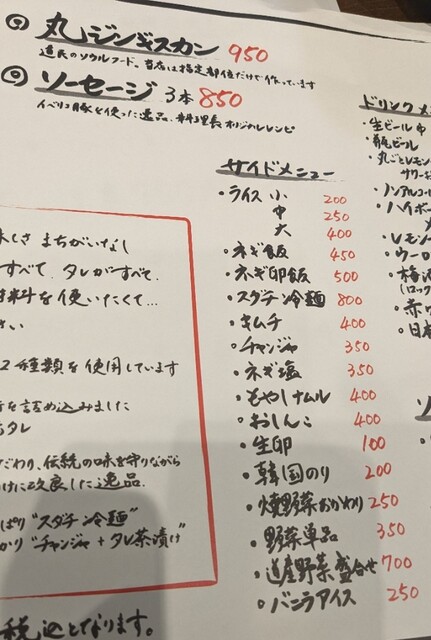 ⑨ 丸ジンギスカン 950
道民のソウルフード。当店は指定部位だけで作っています
⑩ ソーセージ 3本 850
イベリコ豚を使った逸品 料理長オリジナルレシピ
サイドメニュー
・ライス 小 200
中 250
大 400
・ネギ飯 450
・ネギ卵飯 500
・スダチ冷麺 800
・キムチ 400
・チャンジャ 350
・ネギ塩 350
・もやしナムル 400
・おしんこ 400
・生卵 100
・韓国のり 200
・焼野菜おかわり 250
・野菜単品 350
・道産野菜盛合せ 700
・バニラアイス 250
ドリンクメ
・生ビール 中
・瓶ビール
・丸ごとレモン
サワー
・ノンアルコ
・ハイボー
・レモン
・ウーロ
・梅酒
(ロック
・赤
・日本
味しさ まちがいなし
すべて、タレがすべて、
料を使いたくて…
さい
2種類を使用しています
を詰め込みました
タレ
だわり、伝統の味を守りながら
けに改良した逸品
ぱり"スダチ冷麺"
かり"チャンジャ+タレ茶漬け"
税込となります。